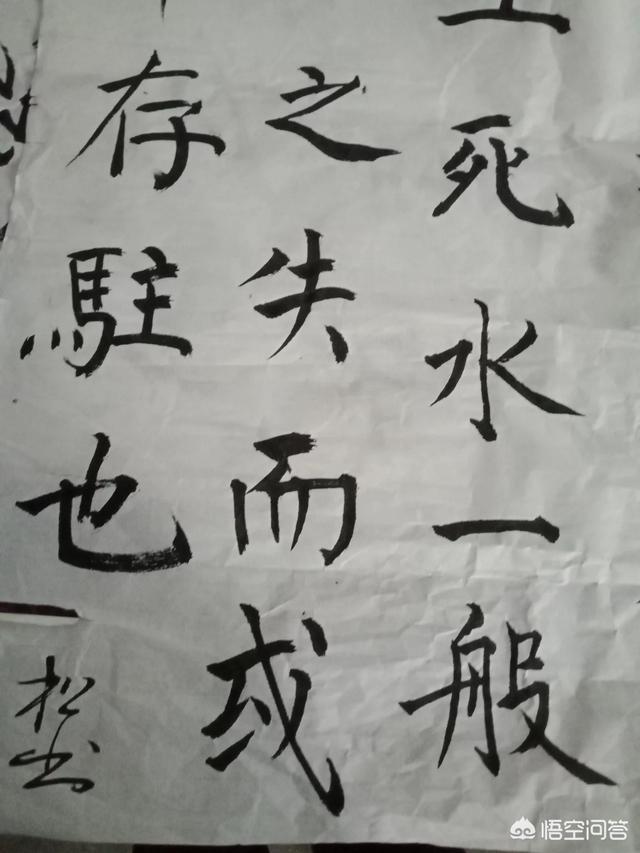 死水一般
之失而或
存駐也
松书
悟空问答